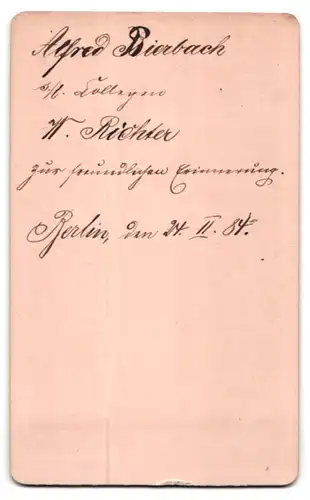 Alfred Bierbach
s/l. Collegen
W. Richter
zur freundlichen Erinnerung.
Berlin, den 24. II. 84.